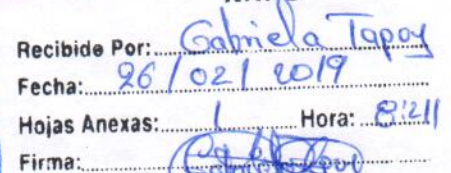 Recibido Por: Gabriela Tapoy
Fecha: 26/02/2019
Hojas Anexas: 1 Hora: 8:21
Firma: